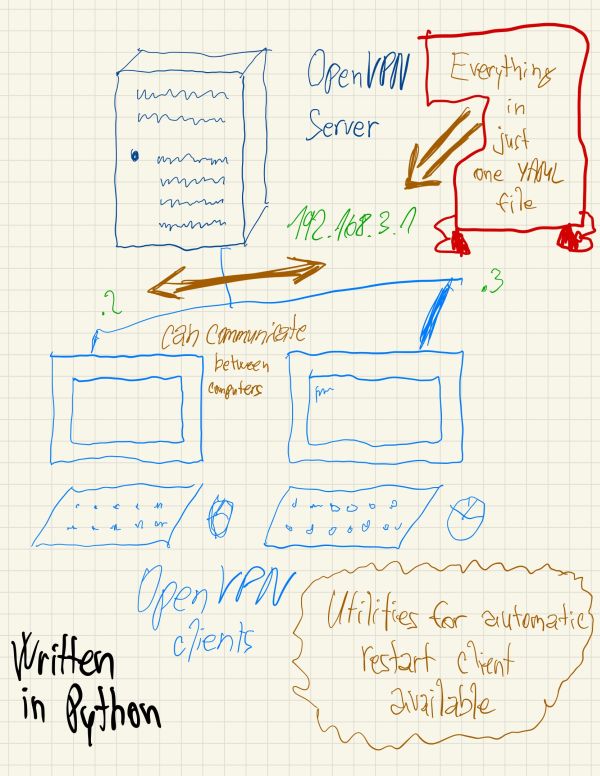 OpenVPN
Server
Everything
in
just
one YAML
file
192.168.3.1
.2
.3
can communicate
between
computers
OpenVPN
clients
Utilities for automatic
restart client
available
Written
in Python